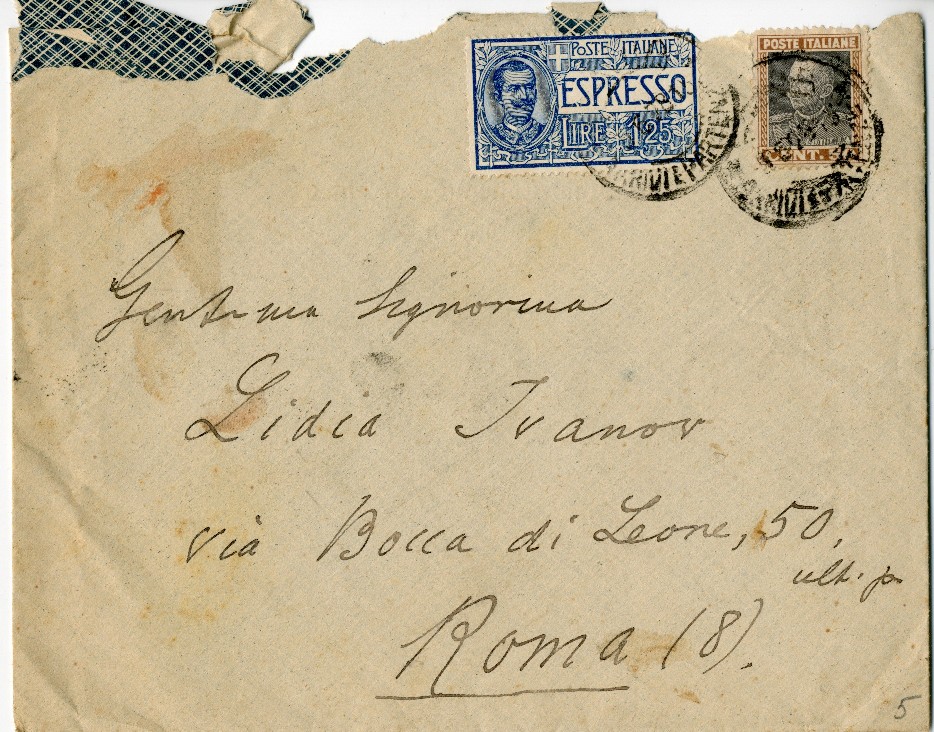 POSTE ITALIANE
ESPRESSO
LIRE 1,25
POSTE ITALIANE
CENT. 50
Gentma Signorina
Lidia Ivanov
via Bocca di Leone, 50,
ult. p.
Roma (8).
5